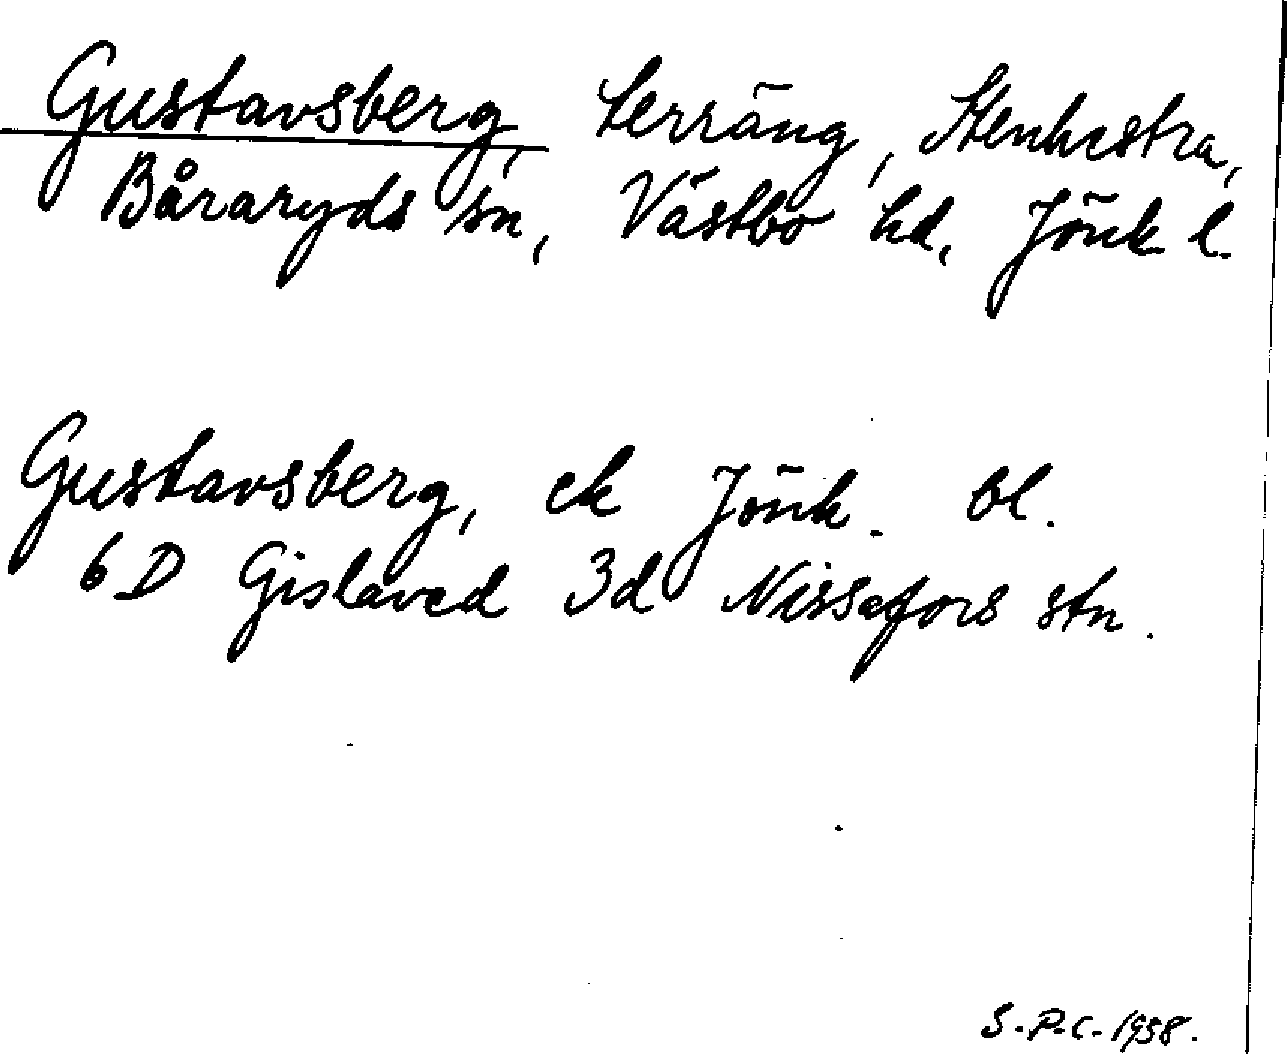 Gustavsberg, terräng, Stenhestra,
Båraryds sn, Västbo hd, Jönk l.
Gustavsberg, ek Jönk. bl.
6 D Gislaved 3d Nissafors stn.
S.P.C. 1958.